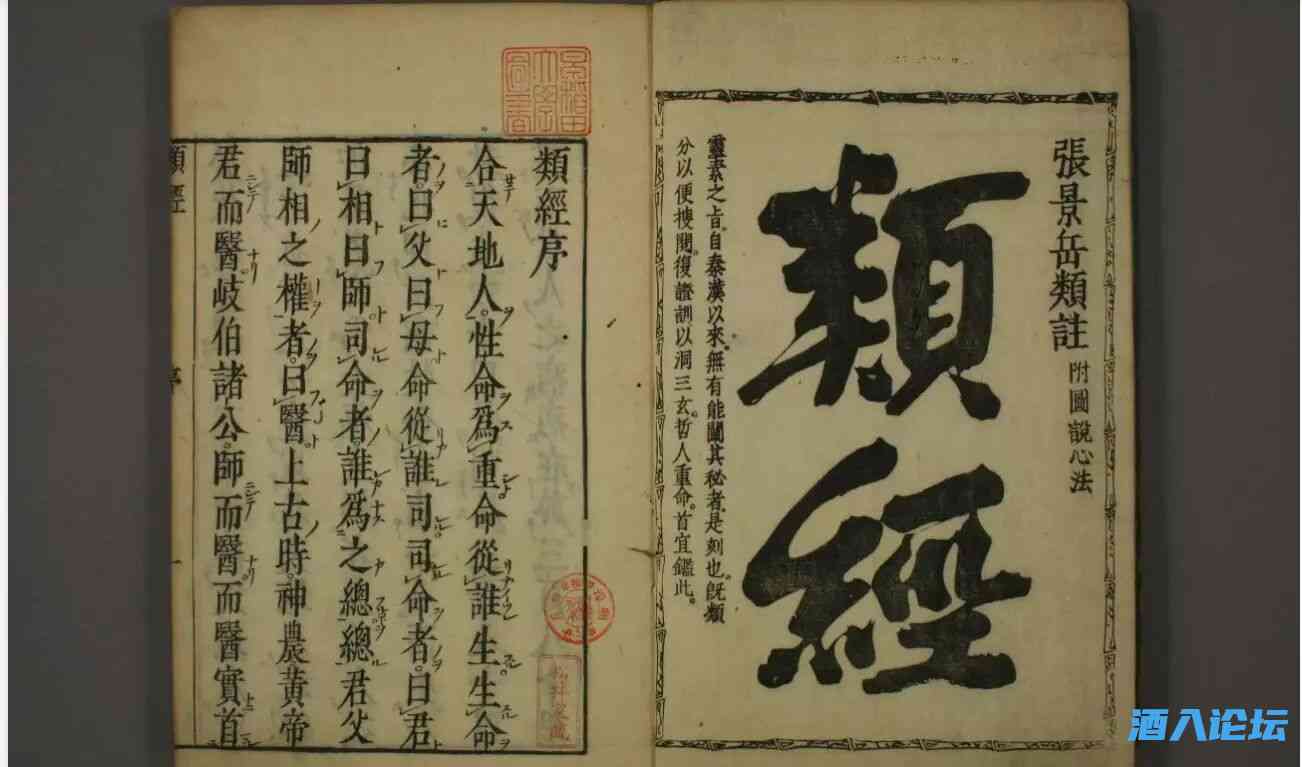 張景岳類註 附圖說心法
類經
靈素之旨。自秦漢以來。無有能闡其秘者。是刻也。旣類
分以便搜閱。復證訓以洞三玄。哲人重命。首宜鑑此。
類經序
合天地人。性命爲重命從誰生生命
者。曰父曰母命從誰司司命者。曰君
曰相曰師司命者。誰爲之總總君父
師相之權者。曰醫。上古時。神農黃帝
君而醫。岐伯諸公。師而醫。而醫實首
類經
序
一
酒入论坛